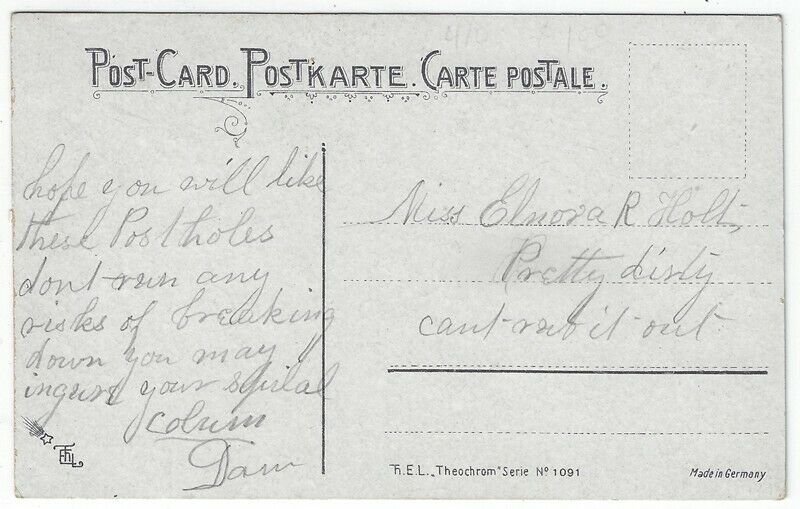 POST-CARD. POSTKARTE. CARTE POSTALE.
hope you will like
these Postholes
dont run any
risks of breaking
down you may
ingure your spinal
colum
Dam
Miss Elnora R Holt,
Pretty dirty
cant rub it out
Th.E.L. „Theochrom" Serie Nº 1091
Made in Germany